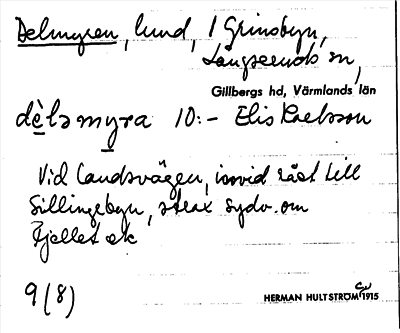 Delmyren, lund, i Grinsbyn,
Långseruds sn,
Gillbergs hd, Värmlands län
dèlsmyra 10:- Elis Karlsson
Vid landsvägen, invid täst till
Sillingebyn, strax sydv. om
Fjellet ek
9(8)
HERMAN HULTSTRÖM 1915